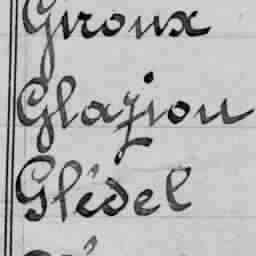 Giroux
Glazion
Glédel